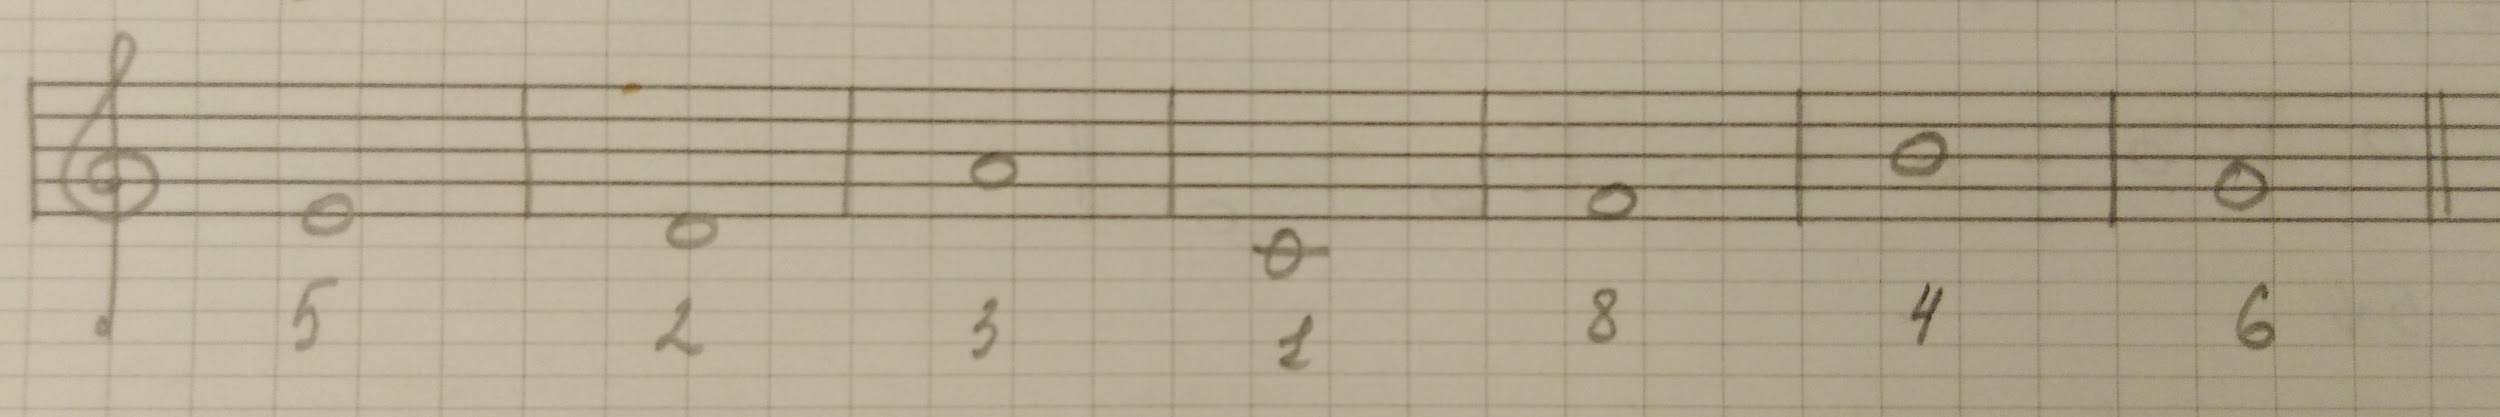 5 2 3 1 8 4 6